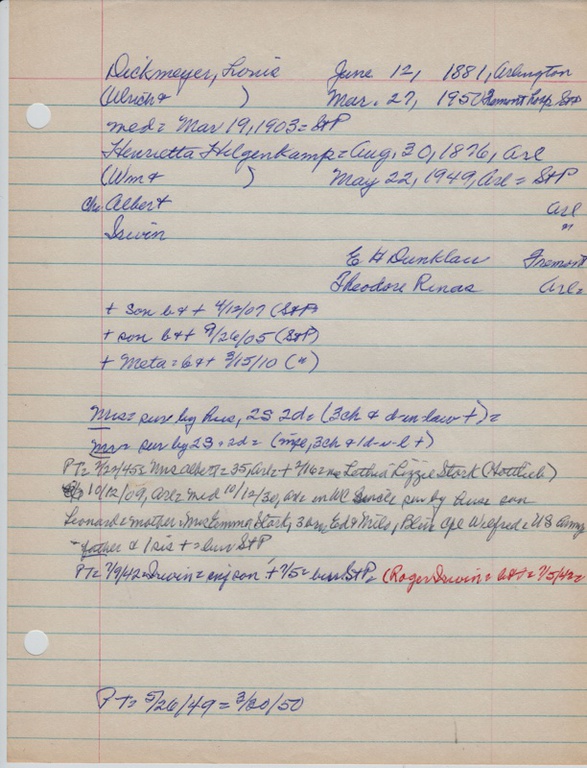 Dickmeyer, Louis June 12, 1881, Arlington
(Ulrich & ) Mar. 27, 1950 Fremont Hosp StP
med = Mar 19, 1903 = StP
Henrietta Helgenkamp = Aug, 30, 1876, Arl
(Wm & ) May 22, 1949, Arl = StP
Ch. Albert Arl
Irwin "
E H Dunklau Fremont
Theodore Rinas Arl =
+ son b & + 4/12/07 (StP)
+ son b & + 9/26/05 (StP)
+ Meta = b & + 3/15/10 (")
Mrs = sur by hus, 2S 2d = (3ch & d-in-law +) =
Mr = sur by 2S + 2d = (wife, 3ch & 1 d-n-l +)
PT = 2/22/45 = Mrs Albert = 35, Arl = + 2/16 = Lizzie Stork (Gottlieb)
10/12/09, Arl = med 10/12/30, sur by hus son
Leonard = mother Mrs Emma Stork, 3 bro, Ed & Milo, Blair Cpl Wilfred = US Army
- father & 1 sis + = bur StP
PT = 7/9/42 = Irwin = son + 7/5 = bur StP = (Roger Irwin = b & + = 7/5/42 =
PT = 5/26/49 = 3/30/50